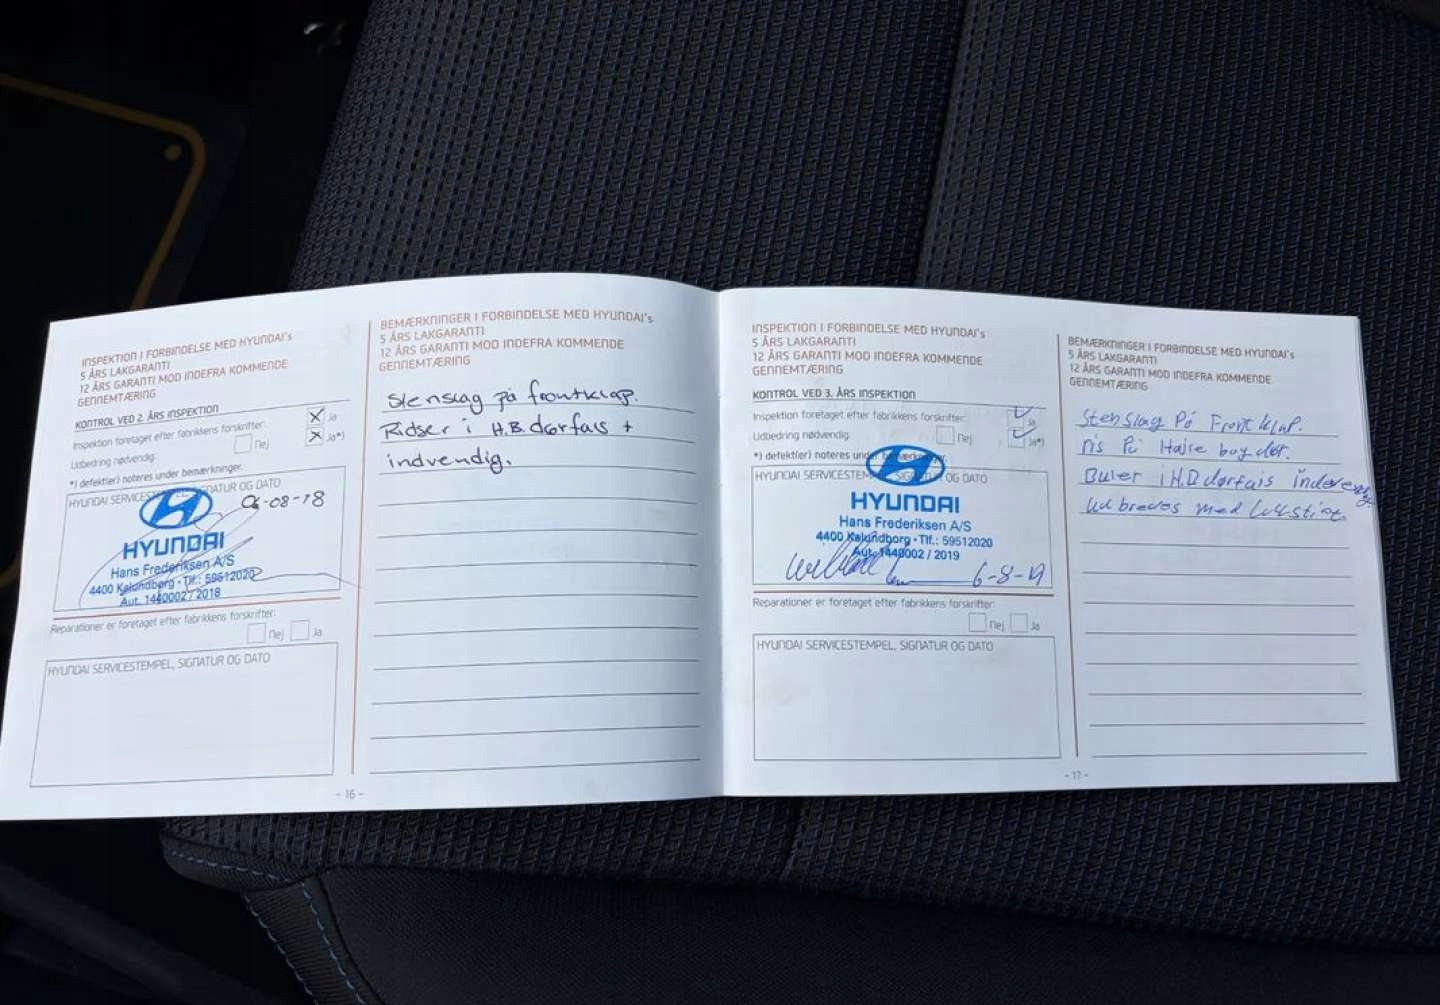 INSPEKTION I FORBINDELSE MED HYUNDAI's
5 ÅRS LAKGARANTI
12 ÅRS GARANTI MOD INDEFRA KOMMENDE
GENNEMTÆRING
KONTROL VED 2. ÅRS INSPEKTION
Inspektion foretaget efter fabrikkens forskrifter: Ja
Udbedring nødvendig: Nej Ja*)
*) defekt(er) noteres under bemærkninger.
HYUNDAI SERVICESTEMPEL, SIGNATUR OG DATO
-08-18
HYUNDAI
Hans Frederiksen A/S
4400 Kalundborg · Tlf.: 59512020
Aut. 1440002 / 2018
Reparationer er foretaget efter fabrikkens forskrifter:
Nej Ja
HYUNDAI SERVICESTEMPEL, SIGNATUR OG DATO
BEMÆRKNINGER I FORBINDELSE MED HYUNDAI's
5 ÅRS LAKGARANTI
12 ÅRS GARANTI MOD INDEFRA KOMMENDE
GENNEMTÆRING
Stenslag på frontklap.
Ridser i H.B. dørfals +
indvendig.
- 16 -
INSPEKTION I FORBINDELSE MED HYUNDAI's
5 ÅRS LAKGARANTI
12 ÅRS GARANTI MOD INDEFRA KOMMENDE
GENNEMTÆRING
KONTROL VED 3. ÅRS INSPEKTION
Inspektion foretaget efter fabrikkens forskrifter: Ja
Udbedring nødvendig: Nej Ja*)
*) defekt(er) noteres under bemærkninger.
HYUNDAI SERVICESTEMPEL, SIGNATUR OG DATO
HYUNDAI
Hans Frederiksen A/S
4400 Kalundborg · Tlf.: 59512020
Aut. 1440002 / 2019
6-8-19
Reparationer er foretaget efter fabrikkens forskrifter:
Nej Ja
HYUNDAI SERVICESTEMPEL, SIGNATUR OG DATO
BEMÆRKNINGER I FORBINDELSE MED HYUNDAI's
5 ÅRS LAKGARANTI
12 ÅRS GARANTI MOD INDEFRA KOMMENDE
GENNEMTÆRING
Stenslag På Frontklap.
På Højre bag dør.
Buler i H.D dørfals
med Lakstift.
- 17 -